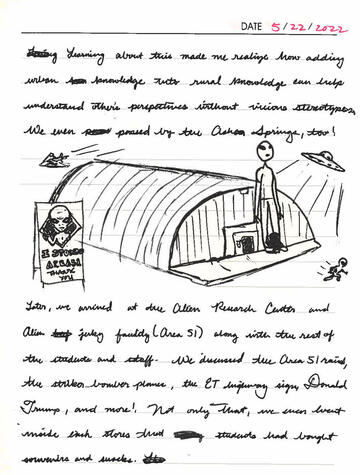 DATE 5/22/2022
Learning about this made me realize how adding
urban knowledge into rural knowledge can help
understand other's perspectives without vicious stereotypes.
We even passed by the Ash Springs, too!
I STOPPED
THANK
YOU
Later, we arrived at the Alien Research Center and
Alien jerky facility (Area 51) along with the rest of
the students and staff. We discussed the Area 51 raid,
the striker bomber planes, the ET highway sign, Donald
Trump, and more! Not only that, we even went
inside each stores that students had bought
souvenirs and snacks.